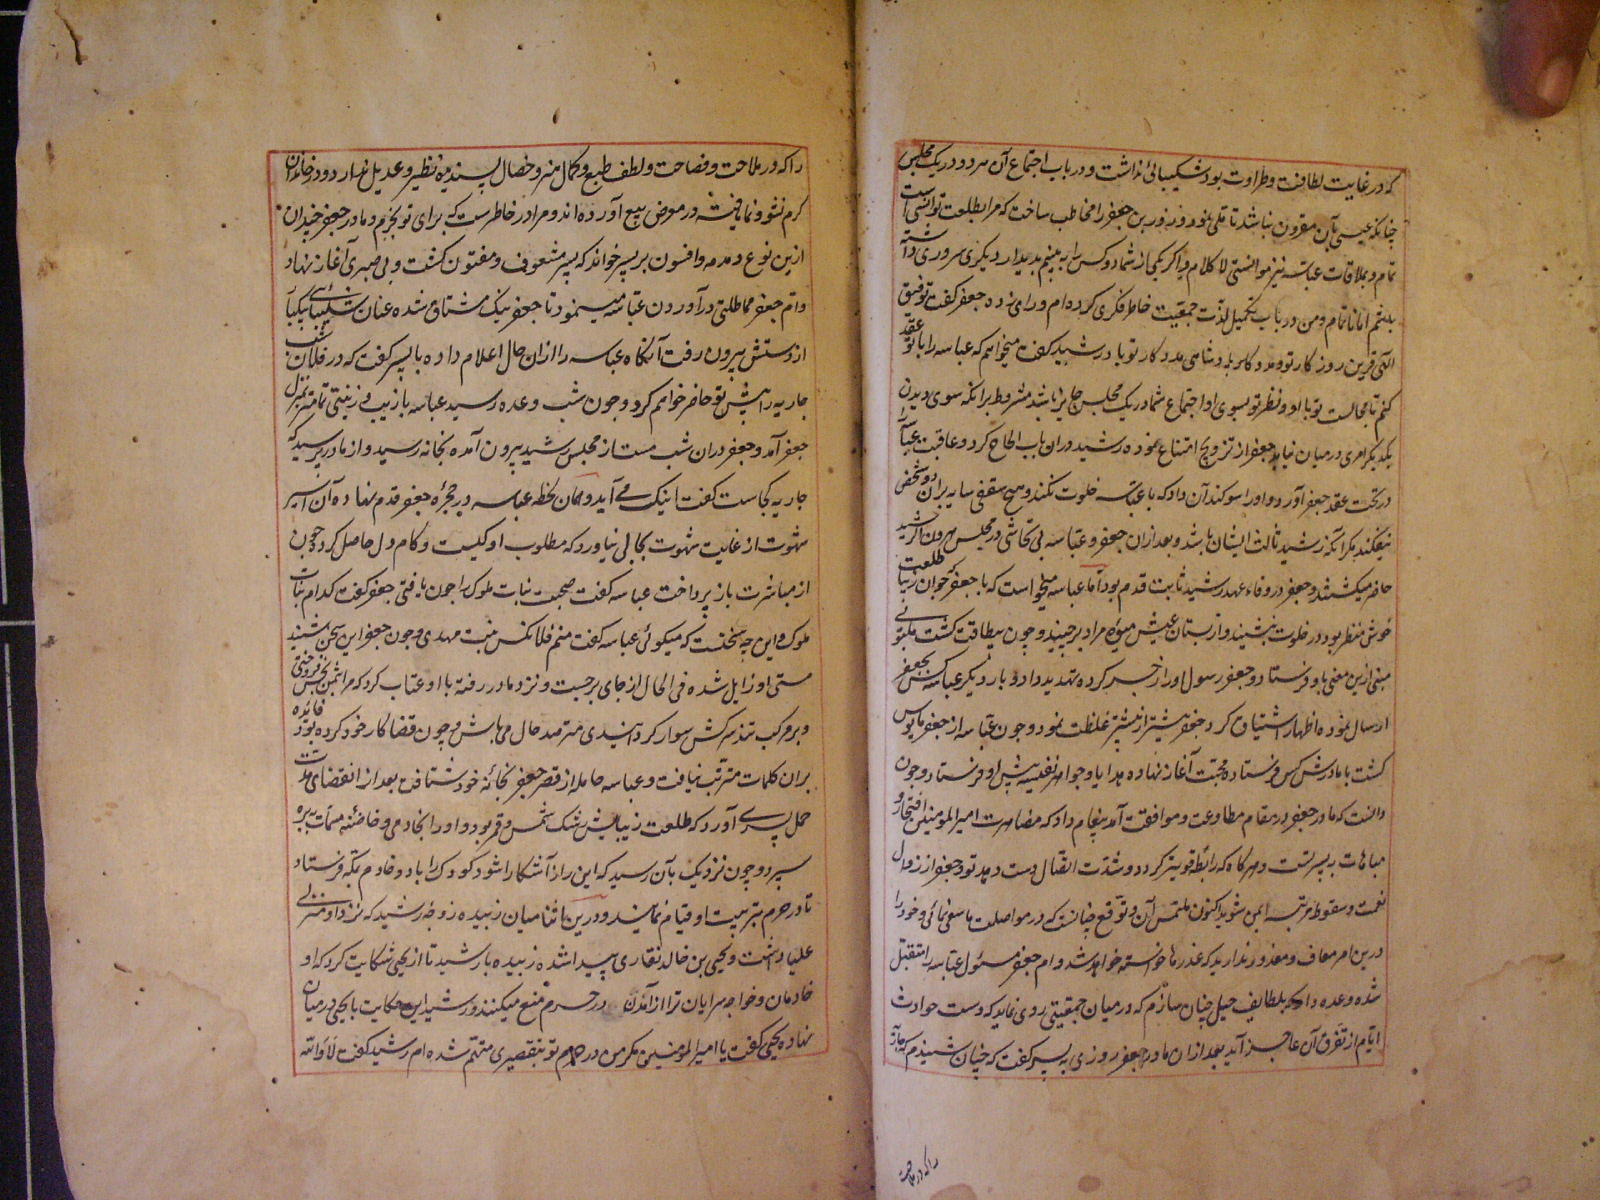 که در غایت لطافت و طراوت بود شکیبائی نداشت و در باب اجتماع آن هر دو در یک مجلس
چنانکه عیسی بآن مقرون نباشد تا قلی نمود روزی جعفر را مخاطب ساخت که مرا بطلعت تو انسی است
تمام و بملاقات عباسه نیز موانستی لا کلام و اگر یکی از شما دو کس را به بینم بدیدار دیگری سروری داشته
باشم اما ناتمام و من در باب تکمیل لذت جمعیت خاطر فکری کرده‌ام و رای زده جعفر گفت توفیق
الهی قرین روزگار تو و مددکار پادشاهی مددکار تو باد رشید گفت میخواهم که عباسه را با تو عقد
کنم تا مجالست تو با او و نظر تو بسوی او و اجتماع شما در یک مجلس جایز باشد مشروط برانکه سوی دیدن
یکدیگر امری در میان نیاید جعفر از تزویج امتناع نموده رشید دران باب الحاح کرد و عاقبت عباسه را
در تحت عقد جعفر آورد و او را سوگند آن داد که با عباسه خلوت نکند و هیچ سقفی سایه بران دو شخص
نیفکند مگر آنکه رشید ثالث ایشان باشد و بعد ازان جعفر و عباسه بی تحاشی در مجلس هرون الرشید
حاضر میگشتند و جعفر در وفاء عهد رشید ثابت قدم بود اما عباسه میخواست که با جعفر که جوان زیبا طلعت
خوش منظر بود در خلوت بنشیند و از بستان عیش میوه مراد برچیند و چون بیطاقت گشت مکتوبی
مبنی ازین معنی باو فرستاد و جعفر رسول او را زجر کرده تهدید داد و بار دیگر عباسه کس بجعفر
ارسال نموده اظهار اشتیاق کرد جعفر بیشتر از پیشتر غلظت نمود و چون عباسه از جعفر مایوس
گشت با مادرش کس فرستاده محبت آغاز نهاده هدایا و جواهر نفیسه پیش او فرستاد و چون
دانست که مادر جعفر در مقام مطاوعت و موافقت آمد پیغام داد که مصاهرت امیرالمومنین افتخار و
مباهات به پسر تست و هرگاه که رابطه قویتر گردد و شدت اتصال دست دهد تو و جعفر از زوال
نعمت و سقوط مرتبه ایمن شوید اکنون ملتمس آن و توقع چنانست که در مواصلت ما سعی نمائی و خود را
درین امر معاف و معذور نداری که عذر ما خواسته خواهد شد و ام جعفر مسئول عباسه را متقبل
شده وعده داد که بلطایف حیل چنان سازم که در میان جمعیتی روی نماید که دست حوادث
ایام از تفرق آن عاجز آید بعد ازان مادر جعفر روزی به پسر گفت که چنان شنیدم که جاریه
را که در ملاحت
را که در ملاحت و فصاحت و لطف طبع و کمال هنر و خصال پسندیده نظیر و عدیل ندارد و در خاندان
کرم نشو و نما یافته در معرض بیع آورده‌اند و مرا در خاطرست که برای تو بخرم و مادر جعفر چندان
ازین نوع دمدمه و افسون بر پسر خواند که پسر مشعوف و مفتون گشت و بی صبری آغاز نهاد
و ام جعفر مماطلتی در آوردن عباسه مینمود تا جعفر نیک مشتاق شده عنان شکیبائی بیکبار
از دستش بیرون رفت آنگاه عباسه را ازان حال اعلام داده با پسر گفت که در فلان شب
جاریه را پیش تو حاضر خواهم کرد و چون شب وعده رسید عباسه با زیب و زینتی تمامتر بمنزل
جعفر آمد و جعفر دران شب مست از مجلس رشید بیرون آمده بخانه رسید و از مادر پرسید که
جاریه کجاست گفت اینک می آید و همان لحظه عباسه در حجره جعفر قدم نهاده آن اسیر
شهوت از غایت شهوت بجا نیاورد که مطلوب او کیست و کام دل حاصل کرد و چون
از مباشرت باز پرداخت عباسه گفت صحبت بنات ملوک را چون یافتی جعفر گفت کدام بنات
ملوک و این چه سخنست که میگوئی عباسه گفت منم فلانکس بنت مهدی و چون جعفر این سخن شنید
مستی او زایل شده فی الحال از جای برجست و نزد مادر رفته با او عتاب کرد که مرا بثمن بخس فروختی
و بر مرکب تند سرکش سوار گردانیدی مترصد حال می باش و چون قضا کار خود کرده بود فائده
بران کلمات مترتب نیافت و عباسه حامله از قصر جعفر بخانه خود شتافت بعد از انقضای مدت
حمل پسری آورد که طلعت زیبایش رشک شمس و قمر بود و او را بخادمی و حاضنه مسمات ببره
سپرد و چون نزدیک بآن رسید که این راز آشکارا شود کودک را با دو خادم بمکه فرستاد
تا در حرم بتربیت او قیام نمایند و درین اثنا میان زبیده زوجه رشید که نزد او منزلتی
علیا داشت و یحیی بن خالد نقاری پیدا شده زبیده با رشید تا از یحیی شکایت کرد که او
خادمان و خواجه سرایان ترا از آمدن در حرم منع میکنند و رشید این حکایت با یحیی در میان
نهاده یحیی گفت یا امیرالمومنین مگر من در حرم تو بتقصیری متهم شده‌ام رشید گفت لا والله